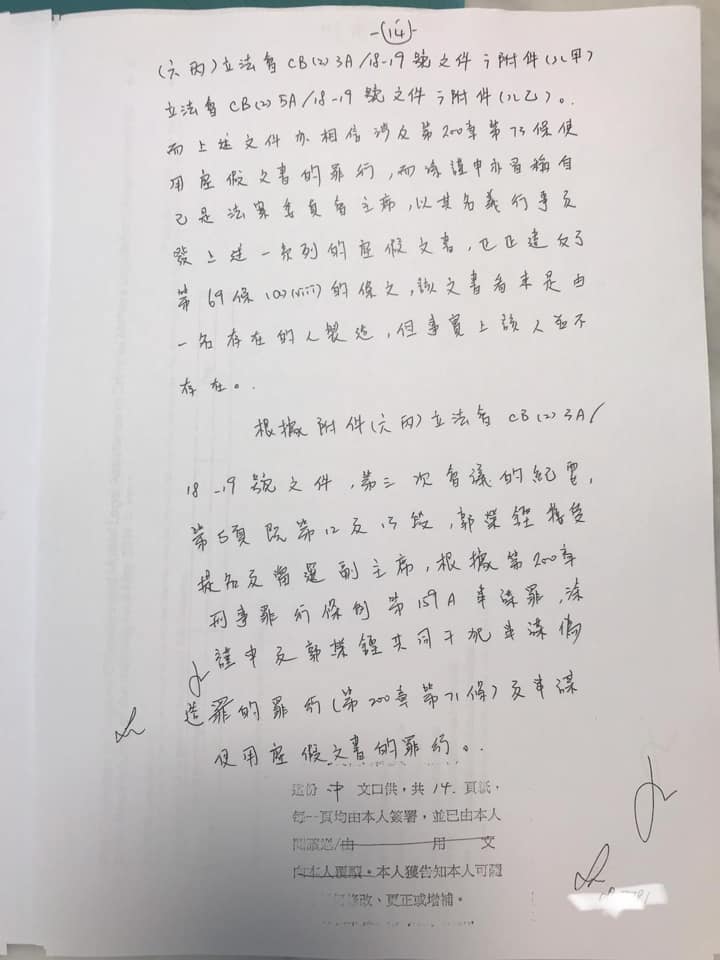 -(14)-
(六丙)立法會CB(2)3A/18-19號文件；附件(八甲)
立法會CB(2)5A/18-19號文件；附件(八乙)。
而上述文件亦相信涉及第200章第73條使
用虛假文書的罪行，而涂謹申亦冒稱自
己是法案委員會主席，以其名義行事及
發上述一系列的虛假文書，也正違反了
第69條(a)(viii)的條文，該文書看來是由
一名存在的人製造，但事實上該人並不
存在。
根據附件(六丙)立法會CB(2)3A/
18-19號文件，第三次會議的紀要，
第5頁既第12及13段，郭榮鏗接受
提名及當選副主席，根據第200章
刑事罪行條例第159A串謀罪，涂
謹申及郭榮鏗共同干犯串謀偽
造罪的罪行(第200章第71條)及串謀
使用虛假文書的罪行。
這份 中 文口供，共 14 頁紙，
每一頁均由本人簽署，並已由本人
閱讀過/由 用 文
向本人覆讀。本人獲告知本人可隨
修改、更正或增補。